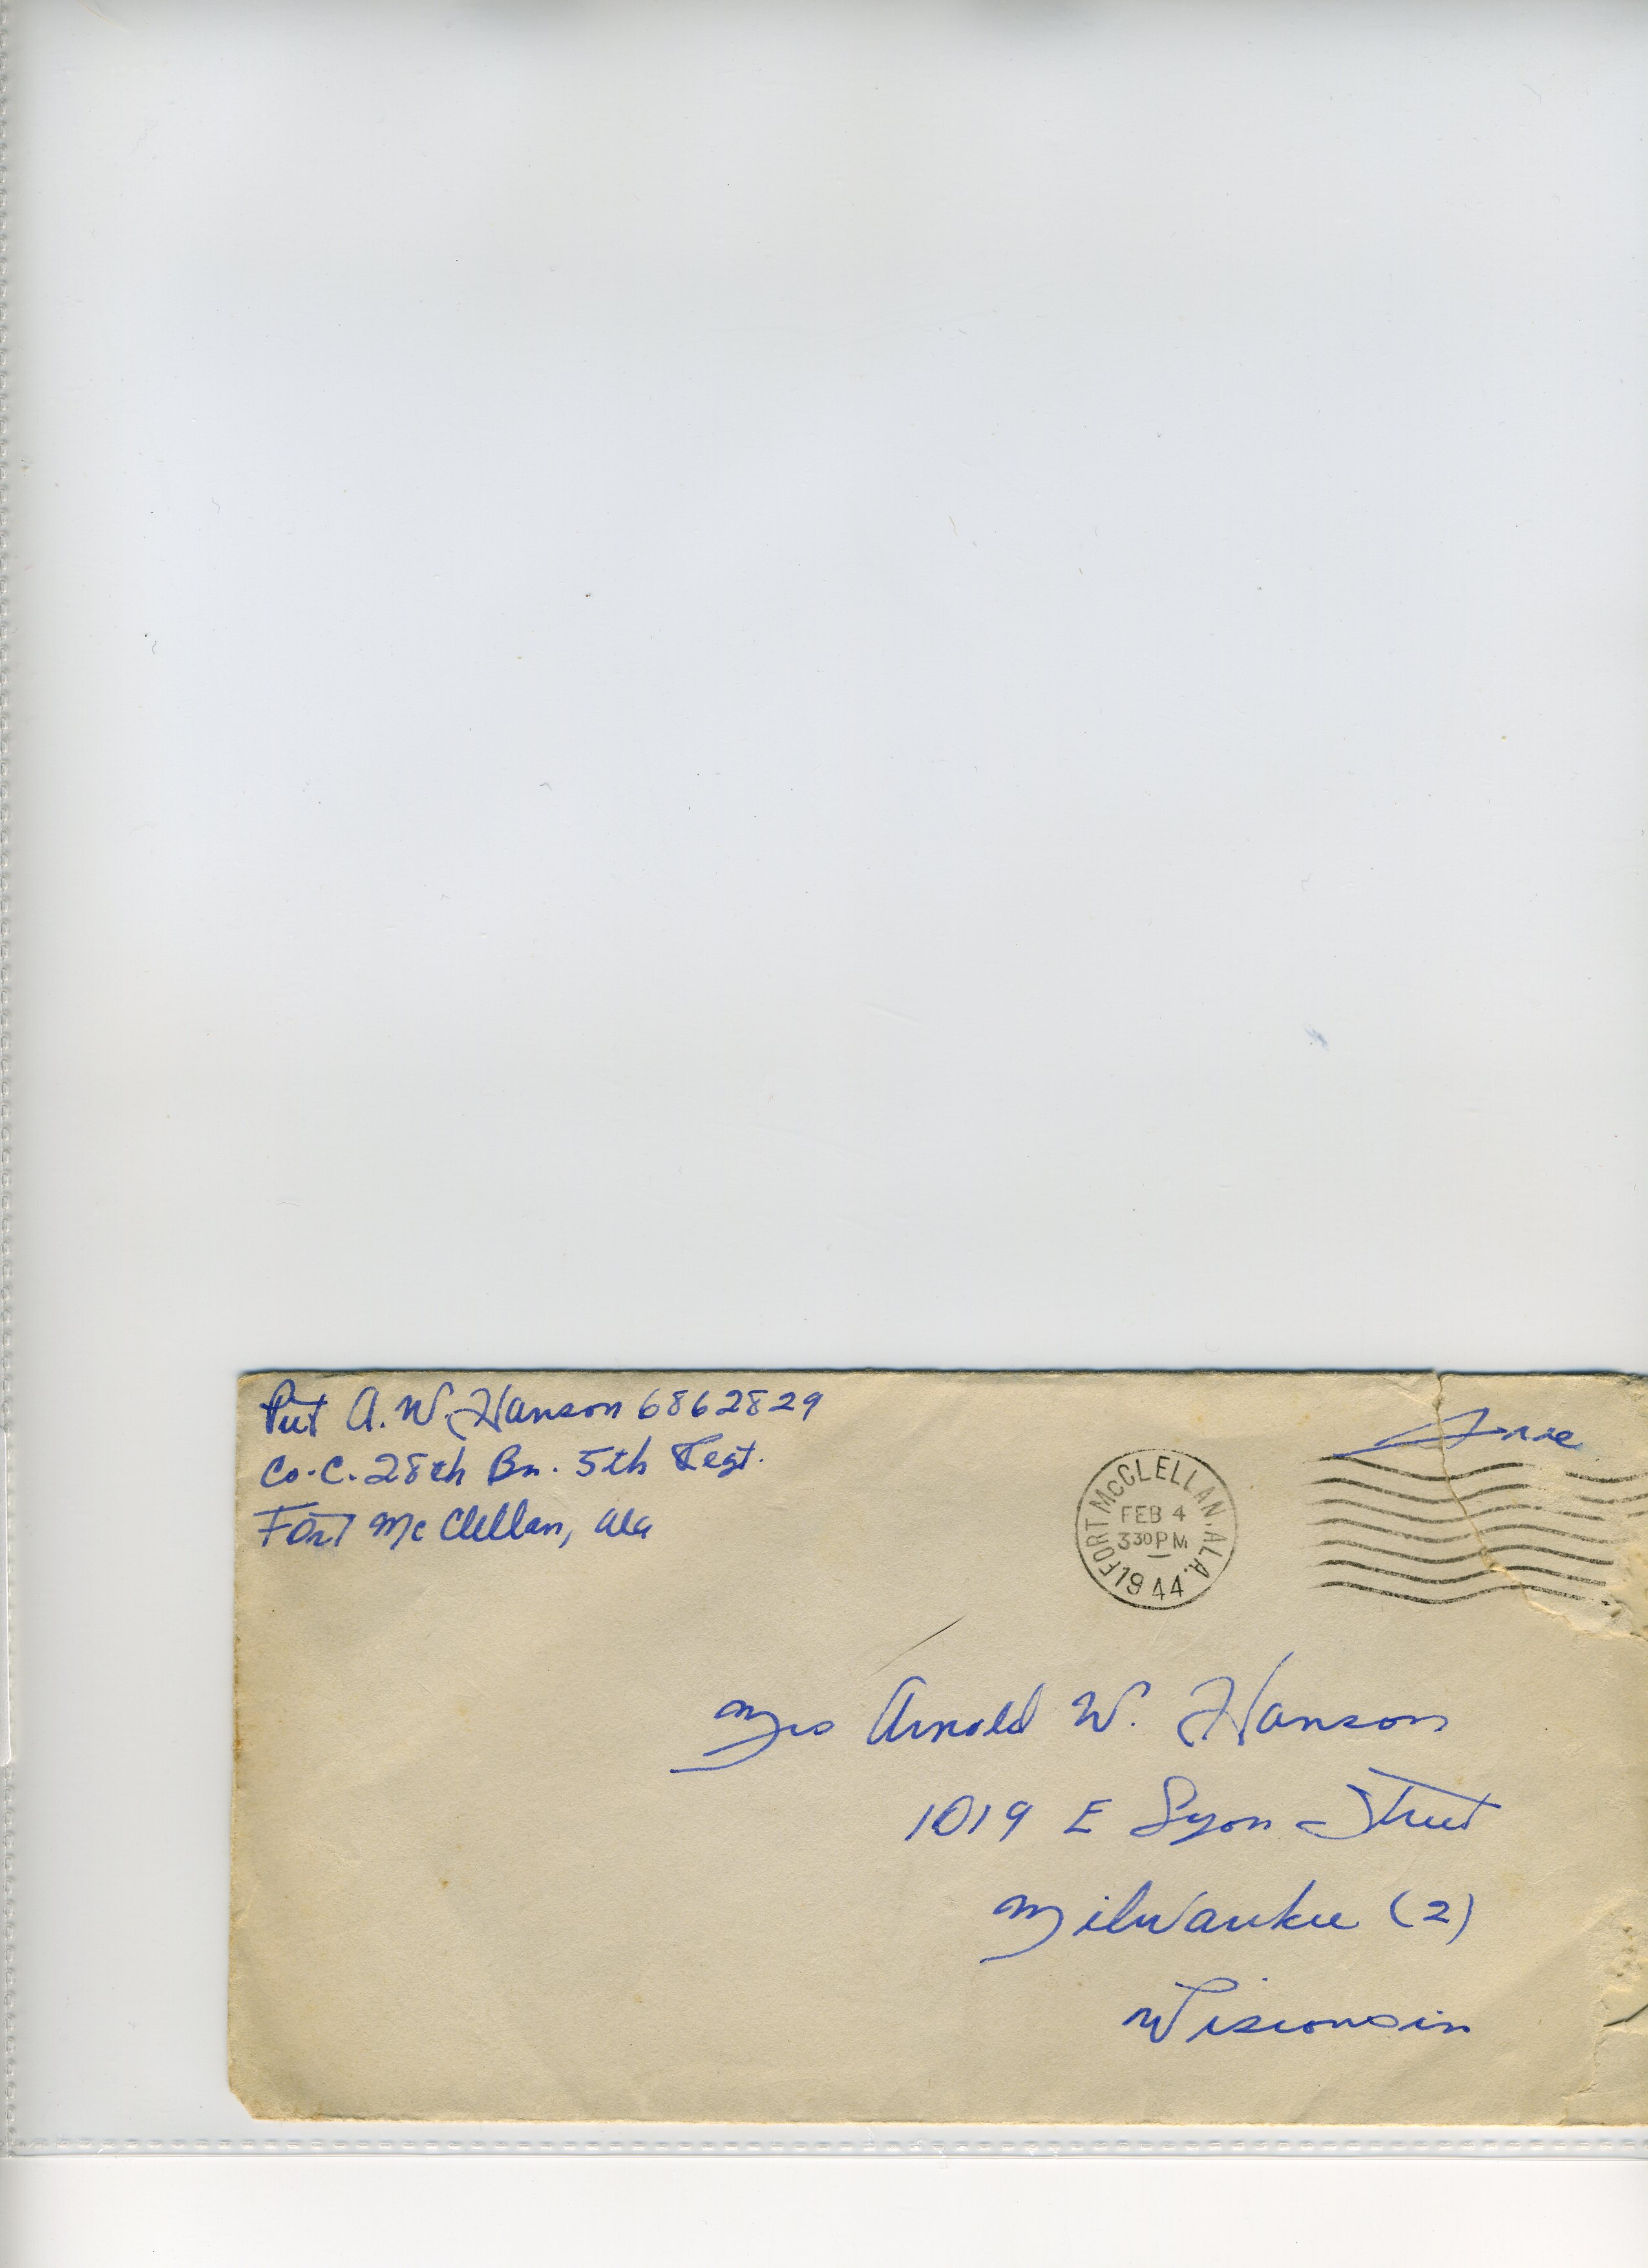 Pvt A. W. Hanson 6862829
Co. C. 28th Bn. 5th Regt.
Fort McClellan, Ala
Free
FORT McCLELLAN, ALA.
FEB 4
3 30 PM
1944
Mrs Arnold W. Hanson
1019 E Lyon Street
Milwaukee (2)
Wisconsin